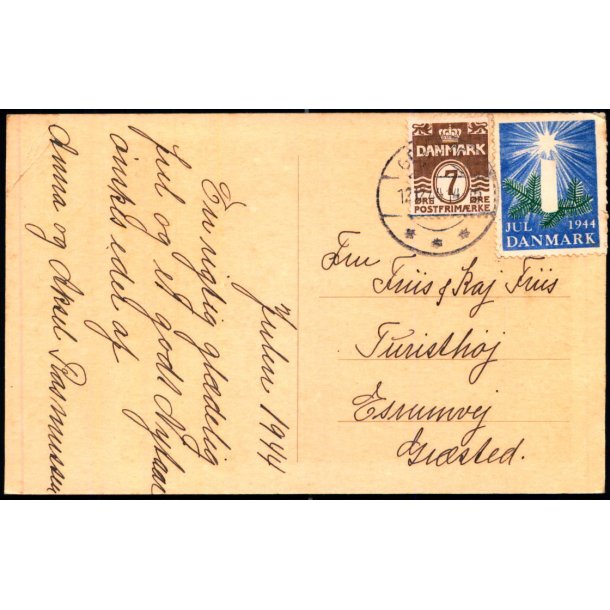 Julen 1944
En rigtig glædelig
Jul og et godt Nytaar
ønskes eder af
Anna og Aksel Rasmussen
DANMARK
7
ØRE ØRE
POSTFRIMÆRKE
JUL 1944
DANMARK
Fru Friis & Kaj Friis
Turisthøj
Esrumvej
Græsted.